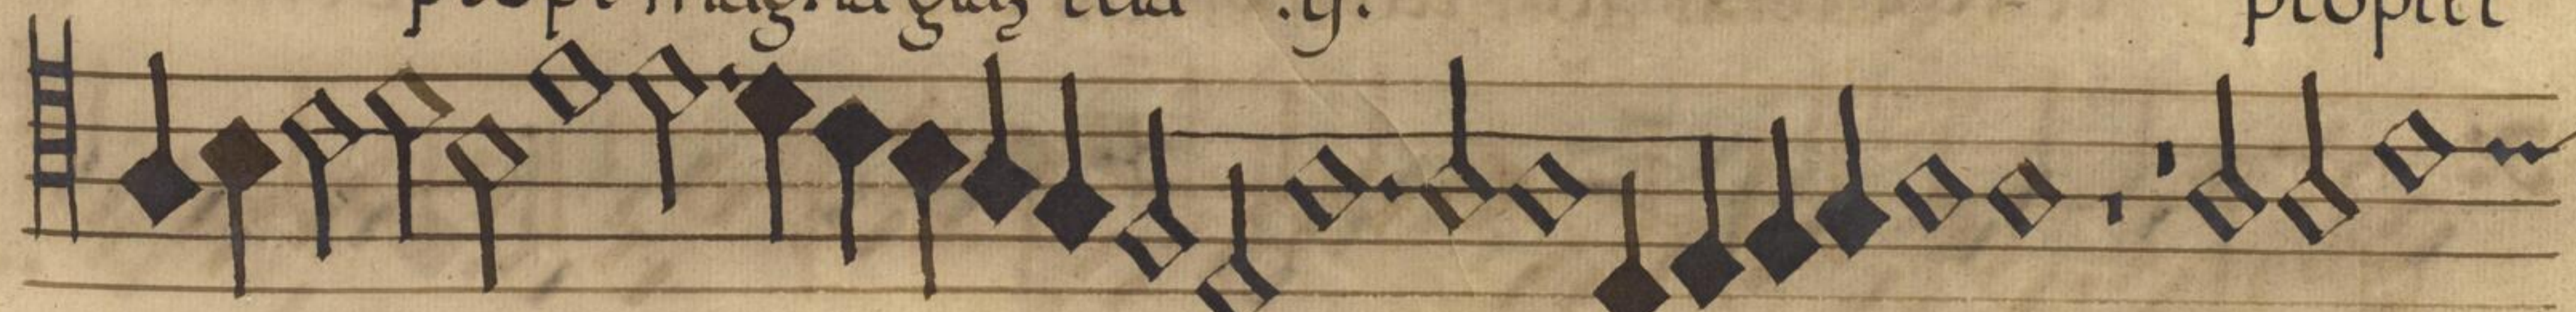 propt magna gliaz tua .ij. propter